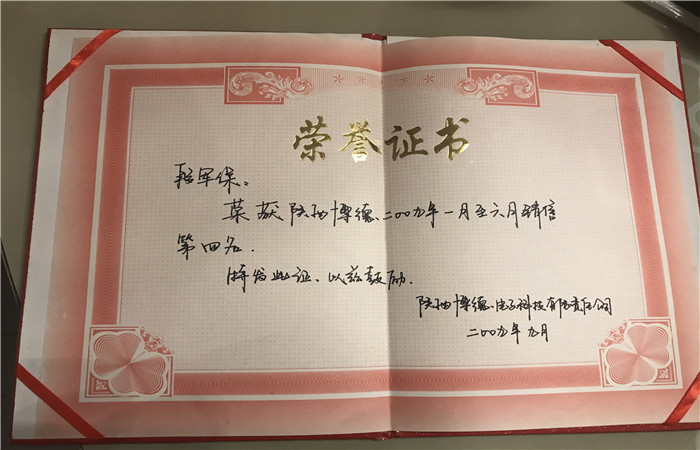 荣誉证书
军保:
荣获陕西博德二00九年一月至六月
第四名.
特发此证.以兹鼓励.
陕西博德电子科技有限责任公司
二00九年九月